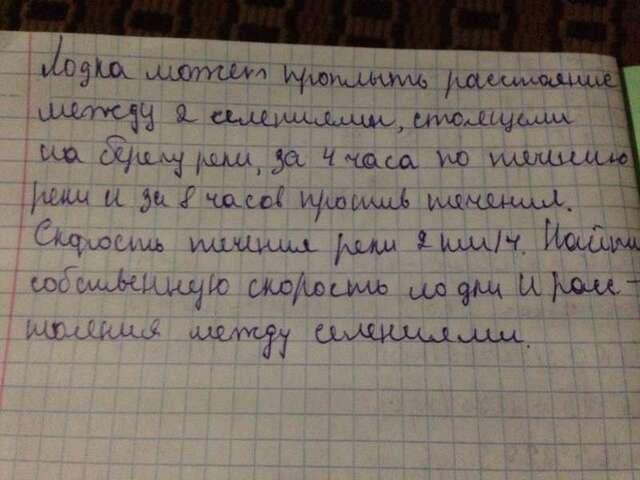 Лодка может проплыть расстояние
между 2 селениями, стоящеми
на берегу реки, за 4 часа по течению
реки и за 8 часов против течения.
Скорость течения реки 2 км/ч. Найти
собственную скорость лодки и расс-
тояния между селениями.